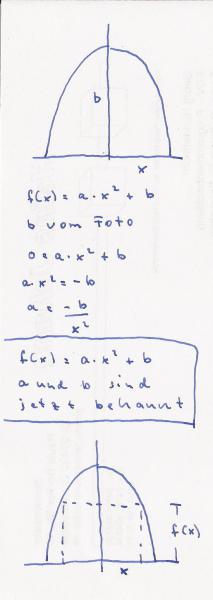 b
x
f(x) = a · x² + b
b vom Foto
0 = a · x² + b
a · x² = -b
a = -b / x²
f(x) = a · x² + b
a und b sind
jetzt bekannt
f(x)
x